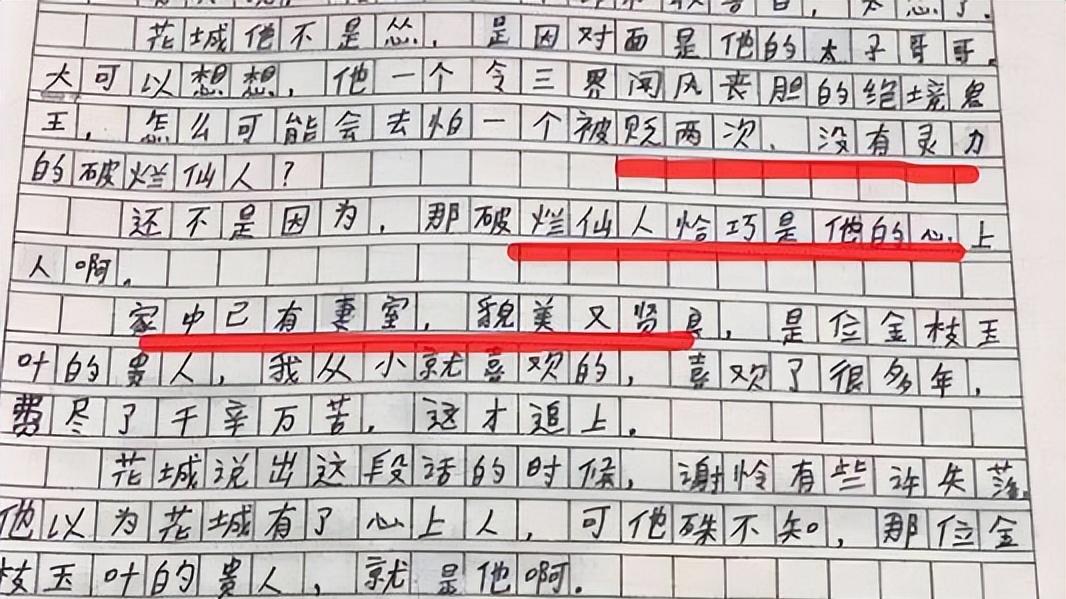 花城他不是怂，是因对面是他的太子哥哥。
大可以想想，他一个令三界闻风丧胆的绝境鬼
王，怎么可能会去怕一个被贬两次、没有灵力
的破烂仙人？
还不是因为，那破烂仙人恰巧是他的心上
人啊。
家中已有妻室，貌美又贤良，是位金枝玉
叶的贵人，我从小就喜欢的，喜欢了很多年，
费尽了千辛万苦，这才追上。
花城说出这段话的时候，谢怜有些许失落。
他以为花城有了心上人，可他殊不知，那位金
枝玉叶的贵人，就是他啊。